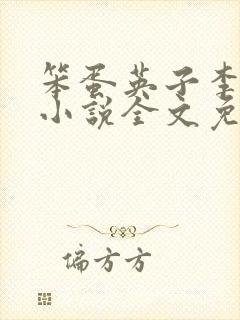 笨蛋英子李
小说全文免
偏方方